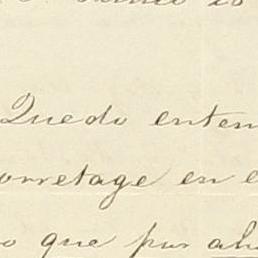 Quedo enten
orretage en e
o que por ah